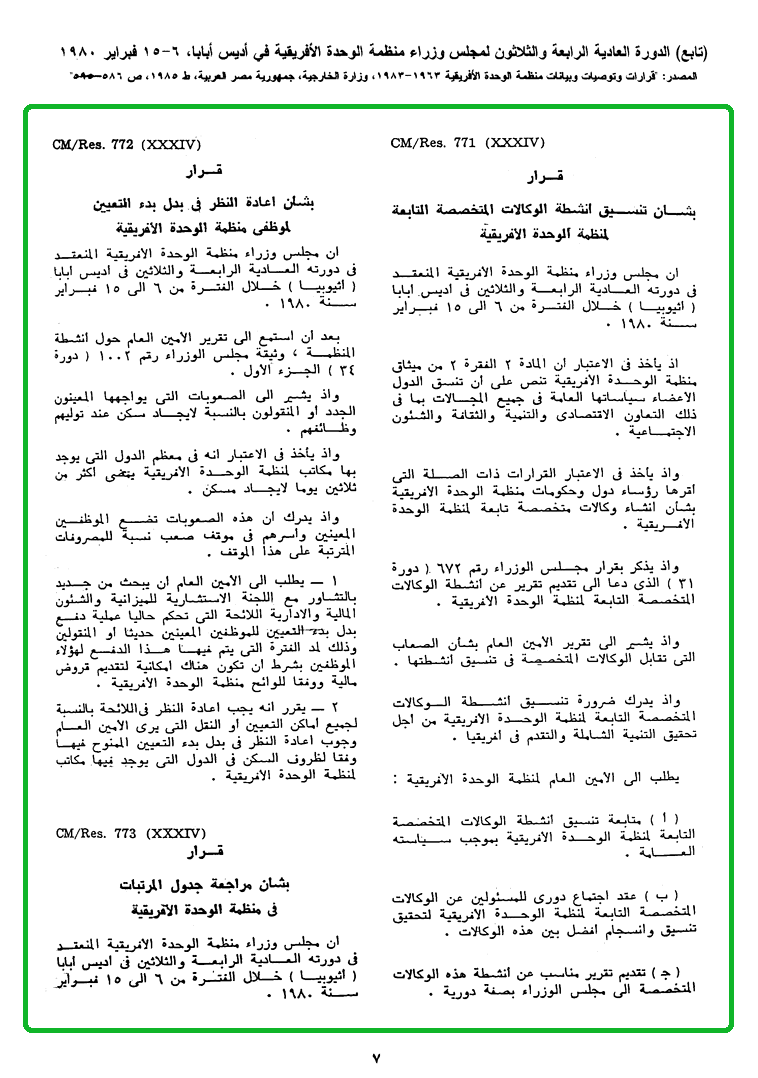 (تابع) الدورة العادية الرابعة والثلاثون لمجلس وزراء منظمة الوحدة الأفريقية في أديس أبابا، ٦-١٥ فبراير ١٩٨٠
المصدر: "قرارات وتوصيات وبيانات منظمة الوحدة الأفريقية ١٩٦٣-١٩٨٣، وزارة الخارجية، جمهورية مصر العربية، ط ١٩٨٥، ص ٥٨٦-٥٩٥"
CM/Res. 771 (XXXIV)
قــرار
بشــان تنســيق انشطة الوكالات المتخصصة التابعة
لمنظمة الوحدة الأفريقية
ان مجلس وزراء منظمة الوحدة الأفريقية المنعقــد
فى دورته العــادية الرابعــة والثلاثين فى اديس أبابا
( اثيوبيــا ) خــلال الفتــرة من ٦ الى ١٥ فبــراير
ســنة ١٩٨٠ .
اذ يأخذ فى الاعتبار ان المادة ٢ الفقرة ٢ من ميثاق
منظمة الوحــدة الأفريقية تنص على ان تنسق الدول
الأعضاء سياساتها العامة فى جميع المجــالات بما فى
ذلك التعاون الاقتصادى والتنمية والثقافة والشئون
الاجتمــاعية .
واذ يأخذ فى الاعتبار القرارات ذات الصــلة التى
أقرها رؤساء دول وحكومات منظمة الوحدة الأفريقية
بشأن انشاء وكالات متخصصة تابعة لمنظمة الوحدة
الأفــريقية .
واذ يذكر بقرار مجــلس الوزراء رقم ٦٧٢ ( دورة
٣١ ) الذى دعا الى تقديم تقرير عن أنشطة الوكالات
المتخصصة التابعة لمنظمة الوحدة الأفريقية .
واذ يشير الى تقرير الأمين العام بشأن الصعاب
التى تقابل الوكالات المتخصصة فى تنسيق انشطتها .
واذ يدرك ضرورة تنســيق أنشطــة الــوكالات
المتخصصة التابعة لمنظمة الوحدة الأفريقية من أجل
تحقيق التنمية الشاملة والتقدم فى أفريقيا .
يطلب الى الأمين العام لمنظمة الوحدة الأفريقية :
( أ ) متابعة تنسيق أنشطة الوكالات المتخصصة
التابعة لمنظمة الوحــدة الأفريقية بموجب ســياسته
العــامة .
( ب ) عقد اجتماع دورى للمسئولين عن الوكالات
المتخصصة التابعة لمنظمة الوحــدة الأفريقية لتحقيق
تنسيق وانسجام أفضل بين هذه الوكالات .
( ج ) تقديم تقرير مناسب عن أنشطة هذه الوكالات
المتخصصة الى مجلس الوزراء بصفة دورية .
CM/Res. 772 (XXXIV)
قــرار
بشأن اعادة النظر فى بدل بدء التعيين
لموظفى منظمة الوحدة الأفريقية
ان مجلس وزراء منظمة الوحدة الأفريقية المنعقــد
فى دورته العــادية الرابعــة والثلاثين فى اديس ابابا
( اثيوبيــا ) خــلال الفتــرة من ٦ الى ١٥ فبــراير
ســنة ١٩٨٠ .
بعد أن استمع الى تقرير الأمين العام حول أنشطة
المنظمــة ، وثيقة مجلس الوزراء رقم ١٠٠٢ ( دورة
٣٤ ) الجــزء الأول .
واذ يشــير الى الصعوبات التى يواجهها المعينون
الجدد أو المنقولون بالنسبة لايجــاد سكن عند توليهم
وظــائفهم .
واذ يأخذ فى الاعتبار انه فى معظم الدول التى يوجد
بها مكاتب لمنظمة الوحــدة الأفريقية يقضى أكثر من
ثلاثين يوما لايجــاد مسكن .
واذ يدرك ان هذه الصعوبات تضــع الموظفــين
المعينين وأسرهم فى موقف صعب نسبة للمصروفات
المترتبة على هذا الموقف .
١ ــ يطلب الى الأمين العام ان يبحث من جــديد
بالتشاور مع اللجنة الاستشارية للميزانية والشئون
المالية والادارية اللائحة التى تحكم حاليا عملية دفــع
بدل بدء التعيين للموظفين المعينين حديثا أو المنقولين
وذلك لمد الفترة التى يتم فيهــا هــذا الدفــع لهؤلاء
الموظفين بشرط ان تكون هناك امكانية لتقديم قروض
مالية ووفقا للوائح منظمة الوحدة الأفريقية .
٢ ــ يقرر انه يجب اعادة النظر فى اللائحة بالنسبة
لجميع أماكن التعيين أو النقل التى يرى الأمين العــام
وجوب اعادة النظر فى بدل بدء التعيين الممنوح فيهــا
وفقا لظروف السكن فى الدول التى يوجد فيها مكاتب
لمنظمة الوحدة الأفريقية .
CM/Res. 773 (XXXIV)
قــرار
بشأن مراجعة جدول المرتبات
فى منظمة الوحدة الأفريقية
ان مجلس وزراء منظمة الوحدة الأفريقية المنعقــد
فى دورته العــادية الرابعــة والثلاثين فى اديس أبابا
( اثيوبيــا ) خــلال الفتــرة من ٦ الى ١٥ فبــراير
ســنة ١٩٨٠ .
٧